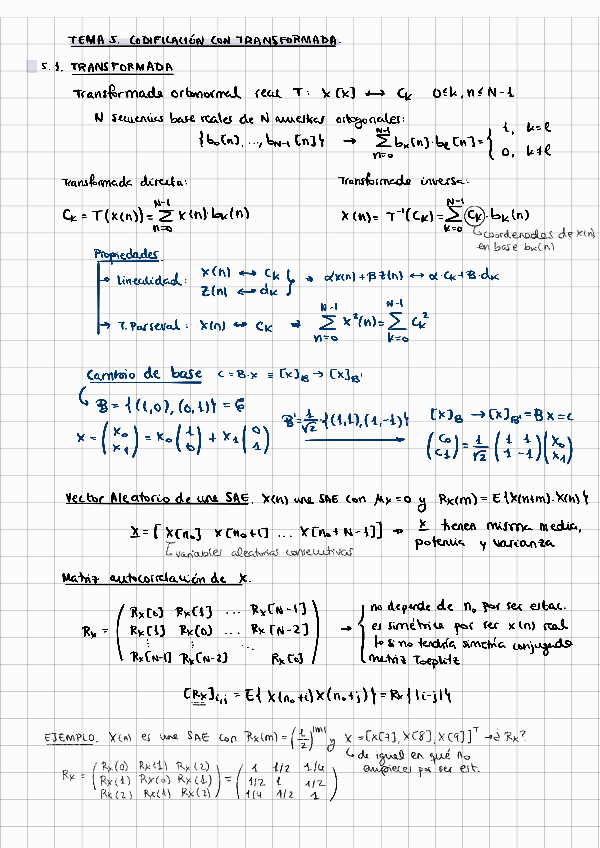 TEMA 5. CODIFICACIÓN CON TRANSFORMADA.
5.1. TRANSFORMADA
Transformada ortonormal real T: x[x] ↔ Ck 0≤k,n≤N-1
N secuencias base reales de N muestras ortogonales:
{b0[n], ..., bN-1[n]} → Σ_{n=0}^{N-1} bk[n]·bl[n] = { 1, k=l
0, k≠l
Transformada directa: Transformada inversa:
Ck = T(x(n)) = Σ_{n=0}^{N-1} x(n)·bk(n) x(n) = T⁻¹(Ck) = Σ_{k=0}^{N-1} Ck·bk(n)
↳ coordenadas de x(n)
en base bk(n)
Propiedades
→ Linealidad: x(n) ↔ Ck
z(n) ↔ dk } → αx(n)+Bz(n) ↔ α·Ck+B·dk
→ T. Parseval: x(n) ↔ Ck → Σ_{n=0}^{N-1} x²(n) = Σ_{k=0}^{N-1} Ck²
Cambio de base C = B·x ≡ [x]B → [x]B'
↳ B = {(1,0), (0,1)} = C B' = 1/√2 {(1,1),(1,-1)} [x]B → [x]B' = Bx = c
x = (x0 x1) = x0 (1 0) + x1 (0 1) (c0 c1) = 1/√2 (1 1 1 -1)(x0 x1)
Vector Aleatorio de una SAE. x(n) una SAE con μx=0 y Rx(m) = E{x(n+m)·x(n)}
x = [x[n0] x[n0+1] ... x[n0+N-1]] → x tienen misma media,
↳ variables aleatorias consecutivas potencia y varianza
Matriz autocorrelación de x.
Rx = ( Rx[0] Rx[1] ... Rx[N-1]
Rx[1] Rx[0] ... Rx[N-2]
⋮ ⋮ ⋮
Rx[N-1] Rx[N-2] Rx[0] ) → { no depende de n0 por ser estac.
es simétrica por ser x(n) real
↳ si no tendría simetría conjugada
matriz Toeplitz
[Rx]i,j = E{x(n0+i)x(n0+j)} = Rx{|i-j|}
EJEMPLO. x(n) es una SAE con Rx(m) = (1/2)^|m| y x = [x[7], x[8], x[9]]^T → ¿Rx?
↳ da igual en qué n0
empieces por ser est.
Rx = ( Rx(0) Rx(1) Rx(2)
Rx(1) Rx(0) Rx(1)
Rx(2) Rx(1) Rx(2) ) = ( 1 1/2 1/4
1/2 1 1/2
1/4 1/2 1 )